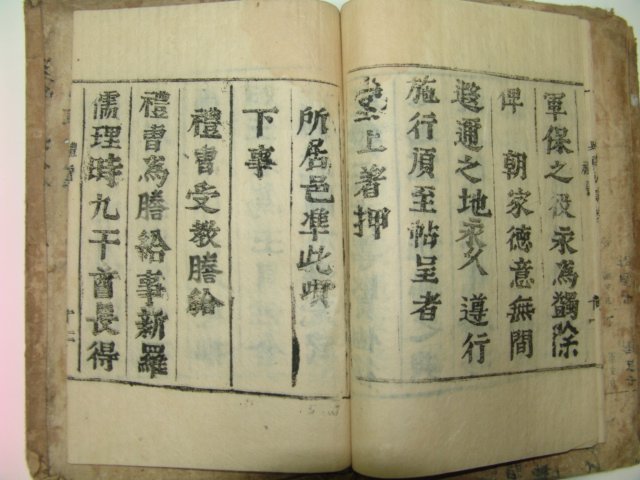 軍保之役永爲蠲除
俾 朝家德意無間
遐邇之地永久遵行
施行湏至帖呈者
堂上着押
所居邑準此
下事
禮曹受敎謄給
禮曹爲謄給事新羅
儒理時九干酋長得